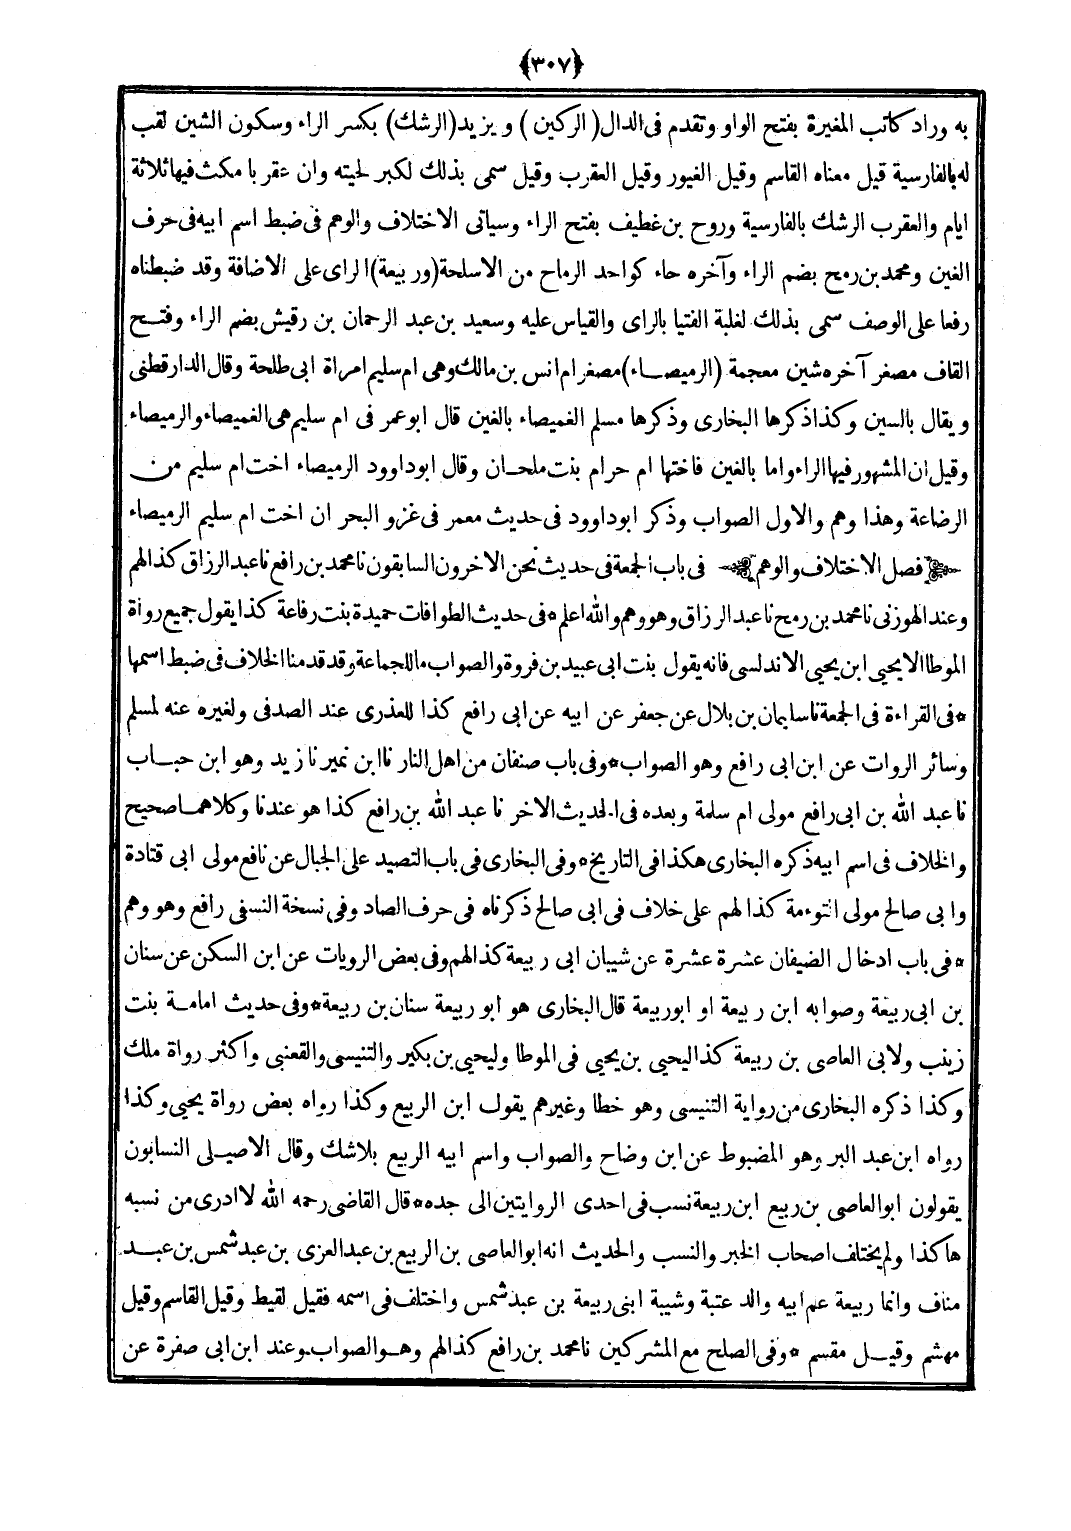 ﴿٣٠٧﴾
به وراد كاتب المغيرة بفتح الواو وتقدم فى الدال (الركين) ويزيد (الرشك) بكسر الراء وسكون الشين لقب
له بالفارسية قيل معناه القاسم وقيل الغيور وقيل العقرب وقيل سمى بذلك لكبر لحيته وان عقربا مكث فيها ثلاثة
ايام والعقرب الرشك بالفارسية وروح بن غطيف بفتح الراء وسياتى الاختلاف والوهم فى ضبط اسم ابيه فى حرف
الغين ومحمد بن رمح بضم الراء وآخره حاء كواحد الرماح من الاسلحة (وربيعة) الراى على الاضافة وقد ضبطناه
رفعا على الوصف سمى بذلك لغلبة الفتيا بالراى والقياس عليه وسعيد بن عبد الرحمان بن رقيش بضم الراء وفتح
القاف مصغر آخره شين معجمة (الرميصاء) مصغر ام انس بن مالك وهى ام سليم امراة ابى طلحة وقال الدارقطنى
ويقال بالسين وكذا ذكرها البخارى وذكرها مسلم الغميصاء بالغين قال ابو عمر فى ام سليم هى الغميصاء والرميصاء
وقيل ان المشهور فيها الراء واما بالغين فاختها ام حرام بنت ملحان وقال ابو داوود الرميصاء اخت ام سليم من
الرضاعة وهذا وهم والاول الصواب وذكر ابو داوود فى حديث معمر فى غزو البحر ان اخت ام سليم الرميصاء
فصل الاختلاف والوهم فى باب الجمعة فى حديث نحن الاخرون السابقون نا محمد بن رافع نا عبد الرزاق كذا لهم
وعند الهوزنى نا محمد بن رمح نا عبد الرزاق وهو وهم والله اعلم * فى حديث الطوافات حميدة بنت رفاعة كذا يقول جميع رواة
الموطا الا يحيى ابن يحيى الاندلسى فانه يقول بنت ابى عبيد بن فروة والصواب ما للجماعة وقد قدمنا الخلاف فى ضبط اسمها
* فى القراءة فى الجمعة نا سليمان بن بلال عن جعفر عن ابيه عن ابى رافع كذا للعذرى عند الصدفى ولغيره عنه لمسلم
وسائر الروات عن ابن ابى رافع وهو الصواب * وفى باب صنفان من اهل النار نا ابن نمير نا زيد وهو ابن حباب
نا عبد الله بن ابى رافع مولى ام سلمة وبعده فى الحديث الاخر نا عبد الله بن رافع كذا هو عندنا وكلاهما صحيح
والخلاف فى اسم ابيه ذكره البخارى هكذا فى التاريخ * وفى البخارى فى باب التصيد على الجبال عن نافع مولى ابى قتادة
وابى صالح مولى التوءمة كذا لهم على خلاف فى ابى صالح ذكرناه فى حرف الصاد وفى نسخة النسفى رافع وهو وهم
* فى باب ادخال الضيفان عشرة عشرة عن شيبان ابى ربيعة كذا لهم وفى بعض الرويات عن ابن السكن عن سنان
بن ابى ربيعة وصوابه ابن ربيعة او ابو ربيعة قال البخارى هو ابو ربيعة سنان بن ربيعة * وفى حديث امامة بنت
زينب ولابى العاصى بن ربيعة كذا ليحيى بن يحيى فى الموطا وليحيى بن بكير والتنيسى والقعنبى واكثر رواة ملك
وكذا ذكره البخارى من رواية التنيسى وهو خطا وغيرهم يقول ابن الربيع وكذا رواه بعض رواة يحيى وكذا
رواه ابن عبد البر وهو المضبوط عن ابن وضاح والصواب واسم ابيه الربيع بلا شك وقال الاصيلى النسابون
يقولون ابو العاصى بن ربيع ابن ربيعة نسب فى احدى الروايتين الى جده * قال القاضى رحمه الله لا ادرى من نسبه
هاكذا ولم يختلف اصحاب الخبر والنسب والحديث انه ابو العاصى بن الربيع بن عبد العزى بن عبد شمس بن عبد
مناف وانما ربيعة عم ابيه والد عتبة وشيبة ابنى ربيعة بن عبد شمس واختلف فى اسمه فقيل لقيط وقيل القاسم وقيل
مهشم وقيل مقسم * وفى الصلح مع المشركين نا محمد بن رافع كذا لهم وهو الصواب وعند ابن ابى صفرة عن